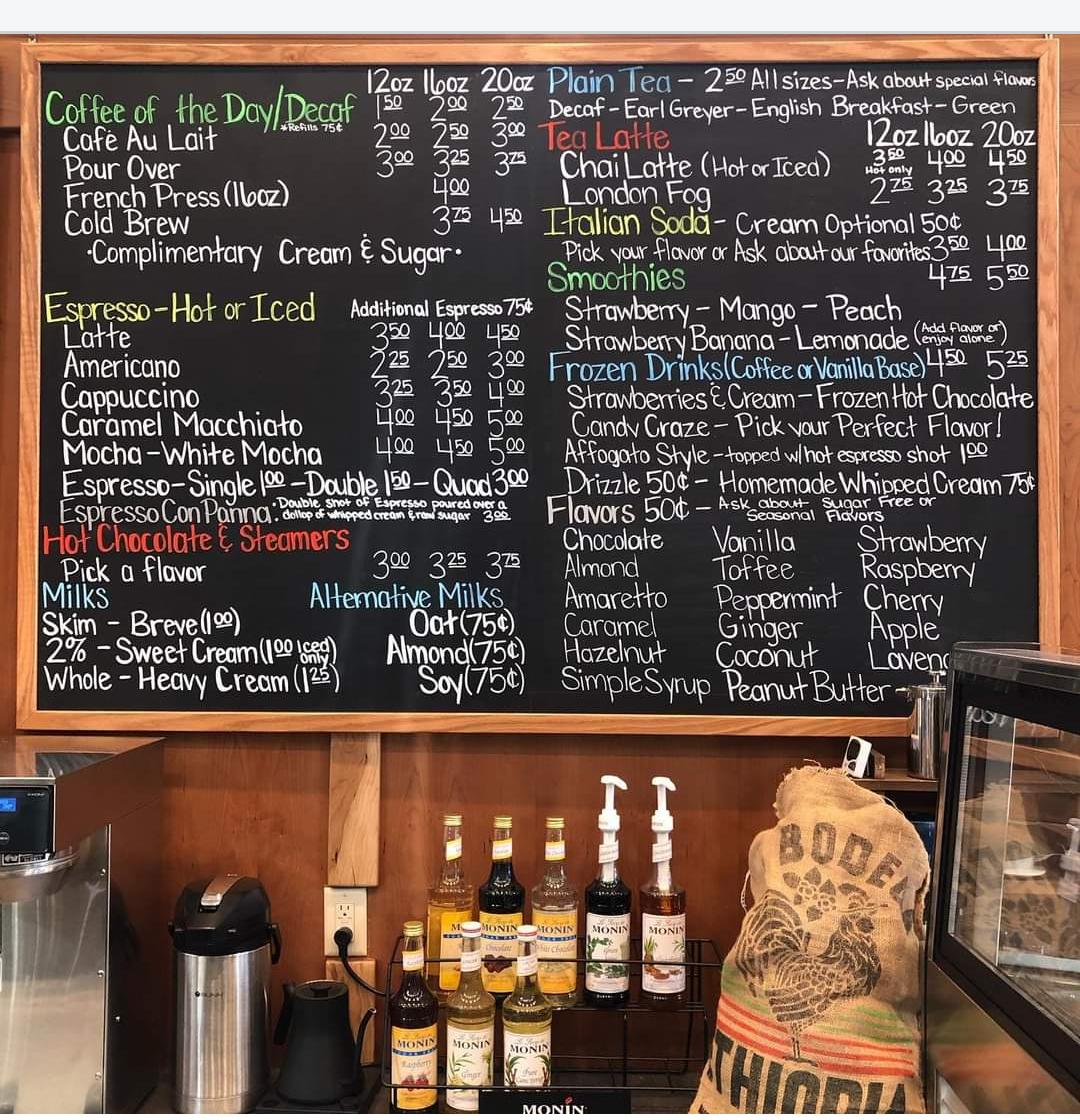 12oz 16oz 20oz
Coffee of the Day/Decaf 1.50 2.00 2.50
*Refills 75¢
Cafè Au Lait 2.00 2.50 3.00
Pour Over 3.00 3.25 3.75
French Press (16oz) 4.00
Cold Brew 3.75 4.50
·Complimentary Cream & Sugar·
Espresso-Hot or Iced Additional Espresso 75¢
Latte 3.50 4.00 4.50
Americano 2.25 2.50 3.00
Cappuccino 3.25 3.50 4.00
Caramel Macchiato 4.00 4.50 5.00
Mocha-White Mocha 4.00 4.50 5.00
Espresso-Single 1.00 -Double 1.50 - Quad 3.00
Espresso Con Panna. ·Double shot of Espresso poured over a
dollop of whipped cream & raw sugar 3.00
Hot Chocolate & Steamers
Pick a flavor 3.00 3.25 3.75
Milks Alternative Milks
Skim - Breve (1.00) Oat (75¢)
2% - Sweet Cream (1.00 Iced only) Almond (75¢)
Whole - Heavy Cream (1.25) Soy (75¢)
Plain Tea - 2.50 All sizes-Ask about special flavors
Decaf - Earl Greyer - English Breakfast - Green
Tea Latte 12oz 16oz 20oz
Chai Latte (Hot or Iced) 3.50 4.00 4.50
Hot only
London Fog 2.75 3.25 3.75
Italian Soda - Cream Optional 50¢
Pick your flavor or Ask about our favorites 3.50 4.00
Smoothies 4.75 5.50
Strawberry - Mango - Peach
Strawberry Banana - Lemonade (Add flavor or enjoy alone)
Frozen Drinks (Coffee or Vanilla Base) 4.50 5.25
Strawberries & Cream - Frozen Hot Chocolate
Candy Craze - Pick your Perfect Flavor!
Affogato Style -topped w/hot espresso shot 1.00
Drizzle 50¢ - Homemade Whipped Cream 75¢
Flavors 50¢ - Ask about Sugar Free or
Seasonal Flavors
Chocolate Vanilla Strawberry
Almond Toffee Raspberry
Amaretto Peppermint Cherry
Caramel Ginger Apple
Hazelnut Coconut Lavend
Simple Syrup Peanut Butter
BUNN
MONIN
Chocolate
MONIN
White Chocolate
MONIN
MONIN
MONIN
Raspberry
MONIN
Ginger
MONIN
MONIN
BODE
THIOPI